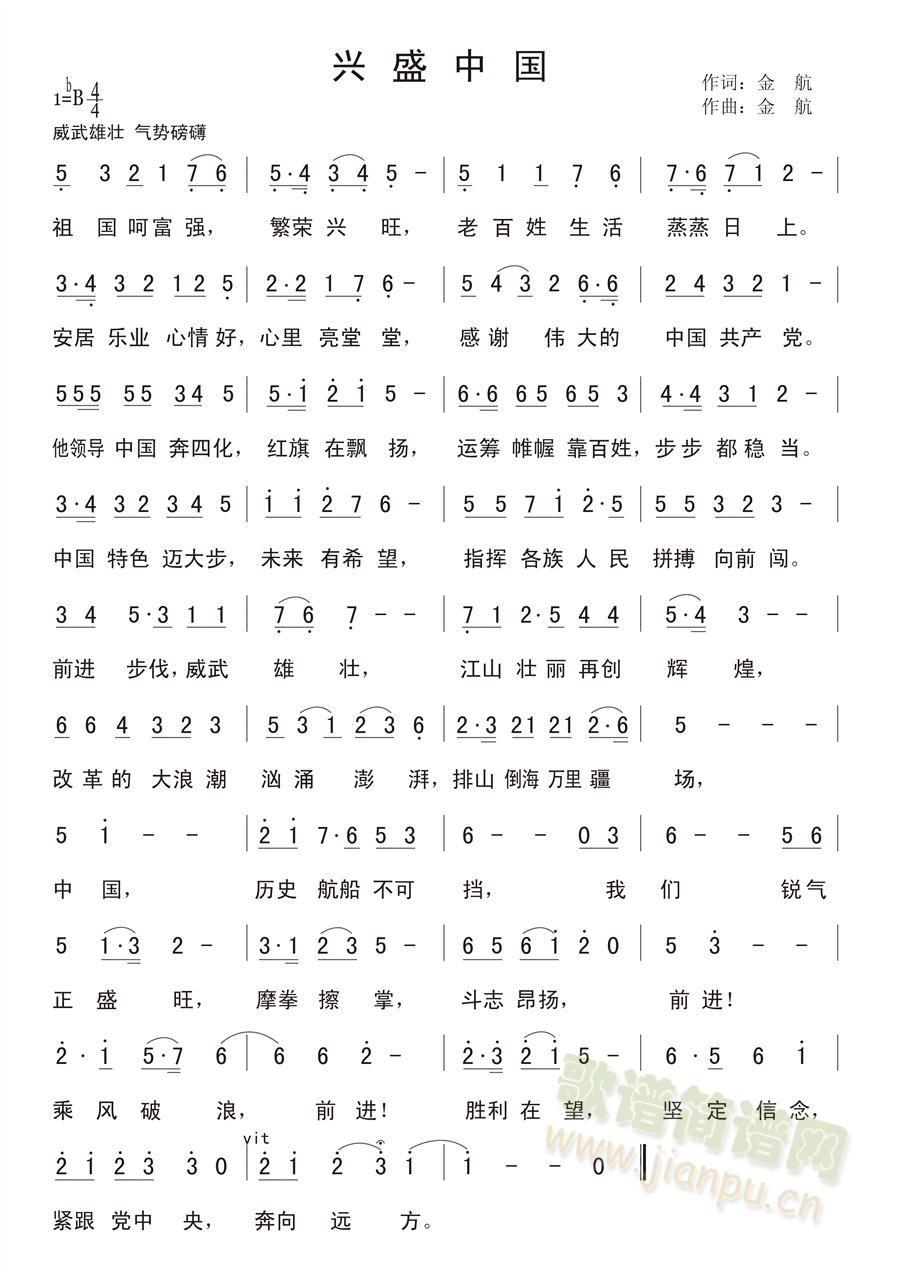 兴盛中国
1=ᵇB 4/4
作词：金 航
作曲：金 航
威武雄壮 气势磅礴
5 3 2 1 7 6 | 5·4 3 4 5 - | 5 1 1 7 6 | 7·6 7 1 2 - |
祖 国 呵富 强， 繁荣 兴 旺， 老 百 姓 生 活 蒸蒸 日 上。
3·4 3 2 1 2 5 | 2·2 1 7 6 - | 5 4 3 2 6·6 | 2 4 3 2 1 - |
安居 乐业 心情 好， 心里 亮堂 堂， 感 谢 伟 大的 中国 共产 党。
5 5 5 5 5 3 4 5 | 5·1 2 1 5 - | 6·6 6 5 6 5 3 | 4·4 3 1 2 - |
他领导 中国 奔四化， 红旗 在飘 扬， 运筹 帷幄 靠百姓， 步步 都稳 当。
3·4 3 2 3 4 5 | 1 1 2 7 6 - | 5 5 7 1 2·5 | 5 5 3 2 3 - |
中国 特色 迈大步， 未来 有希 望， 指挥 各族 人 民 拼搏 向前 闯。
3 4 5·3 1 1 | 7 6 7 - - | 7 1 2·5 4 4 | 5·4 3 - - |
前进 步伐，威武 雄 壮， 江山 壮 丽 再创 辉 煌，
6 6 4 3 2 3 | 5 3 1 2 3 6 | 2·3 21 21 2·6 | 5 - - - |
改 革 的 大浪 潮 汹 涌 澎 湃，排山 倒海 万里 疆 场，
5 1 - - | 2 1 7·6 5 3 | 6 - - 0 3 | 6 - - 5 6 |
中 国， 历史 航船 不可 挡， 我 们 锐气
5 1·3 2 - | 3·1 2 3 5 - | 6 5 6 1 2 0 | 5 3 - - |
正 盛 旺， 摩拳 擦 掌， 斗志 昂扬， 前 进！
2· 1 5·7 6 | 6 6 2 - | 2·3 2 1 5 - | 6·5 6 1 |
乘 风 破 浪， 前 进！ 胜利 在 望， 坚 定 信 念，
vit
2 1 2 3 3 0 | 2 1 2 3 1 | 1 - - 0 ‖
紧跟 党中 央， 奔向 远 方。
歌谱简谱网
www.jianpu.cn